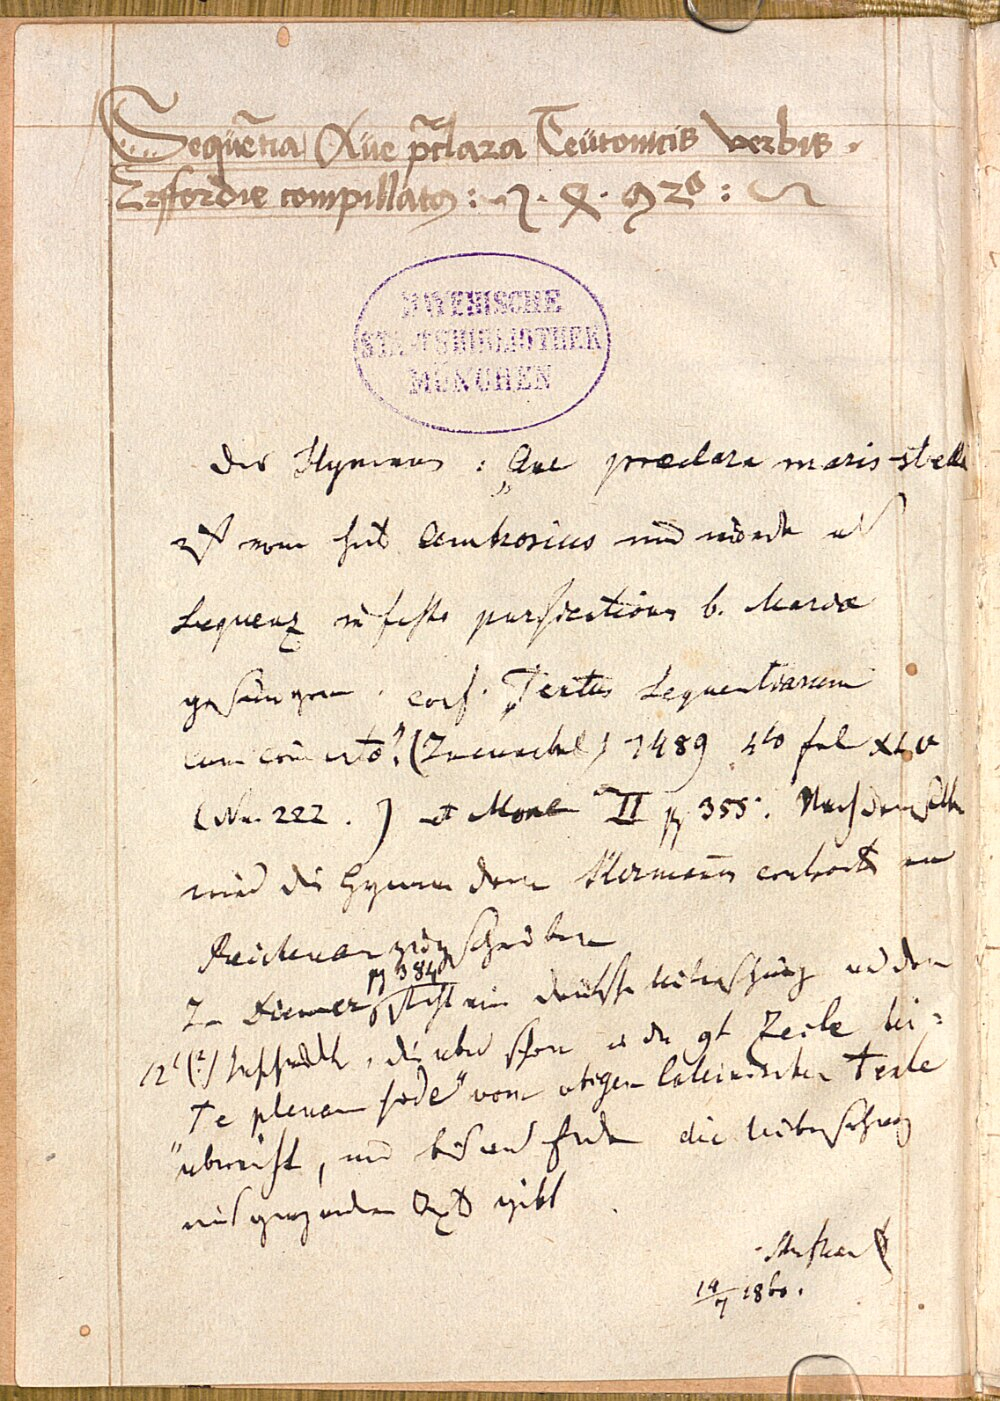 Sequẽtia Aue p̃clara Teütonicis verbis.
Erffordie compillata:
BAYERISCHE
STAATSBIBLIOTHEK
MÜNCHEN
Der Hymnus: „Ave praeclara maris stella
ist vom heil. Ambrosius und wurde als
Sequenz in festo purificationis b. Mariae
gesungen. conf. Textus Sequentiarum
cum 1489 4to fol XLV
(No. 222.) et Mone II pg 355. Nach demselben
wird die Hymne dem Hermann contract von
Reichenau zugeschrieben
pg 384
In Diemer steht eine deutsche Uebersetzung aus dem
12t(?) , die aber schon in der 9t Zeile bei:
"Te plenam fide" vom obigen lateinischen Texte
abweicht, und bis ans Ende die Uebersetzung
gibt.
14/7 1860.